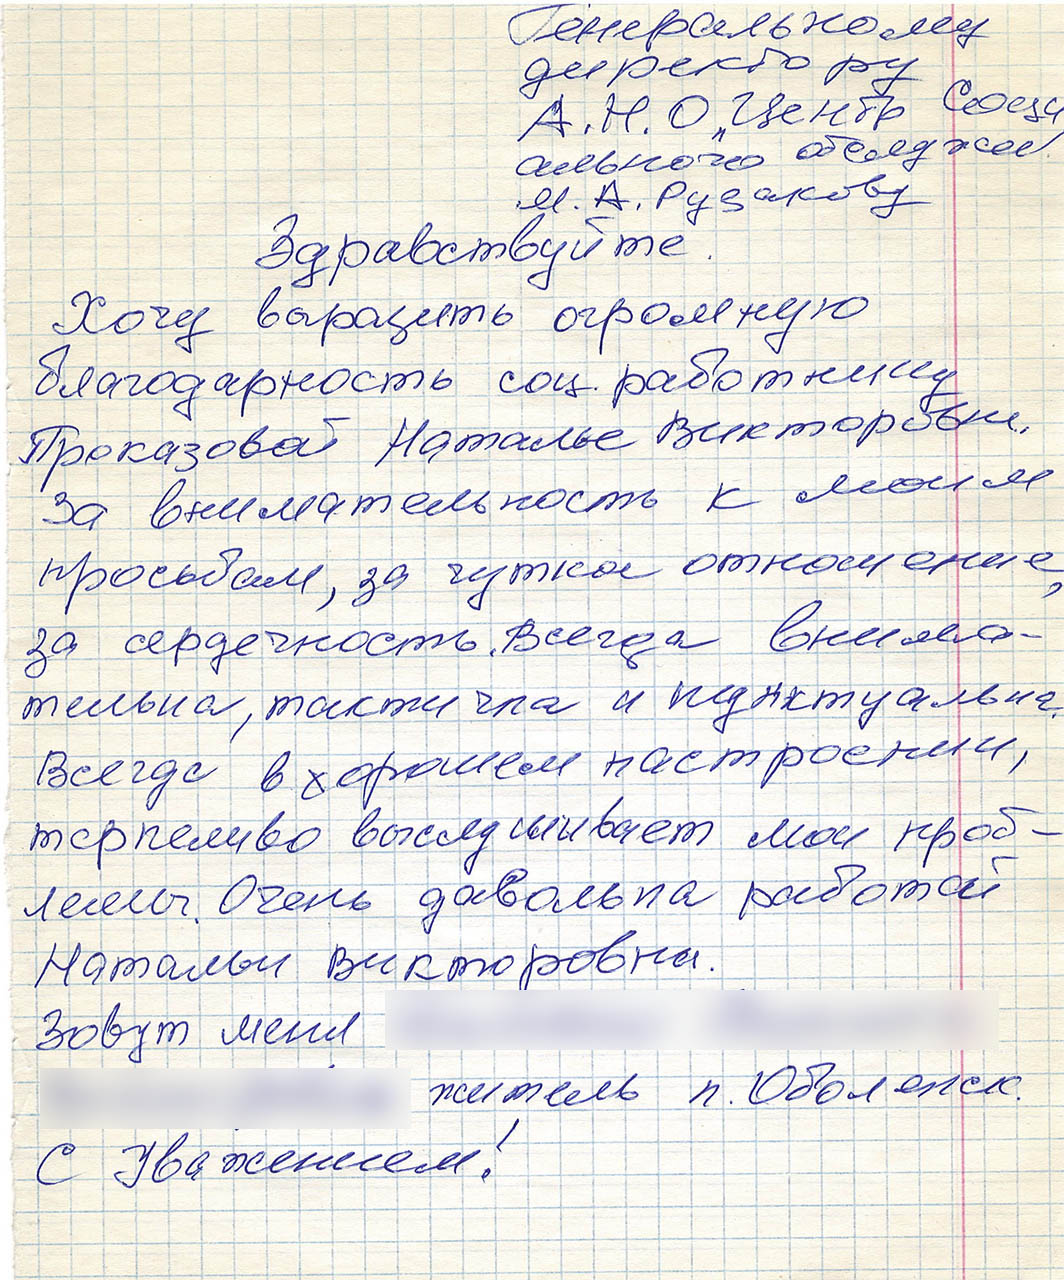 Генеральному
директору
А.Н.О „Центр Соци
ального обслужи.
М.А. Рузакову
Здравствуйте.
Хочу выразить огромную
благодарность соц. работнику
Проказовой Наталье Викторовн.
За внимательность к моим
просьбам, за чуткое отношение,
за сердечность. Всегда внима-
тельна, тактична и пунктуальна.
Всегда в хорошем настроении,
терпеливо выслушивает мои проб-
лемы. Очень давольна работай
Натальи Викторовны.
Зовут меня
житель п. Оболенск.
С Уважением!